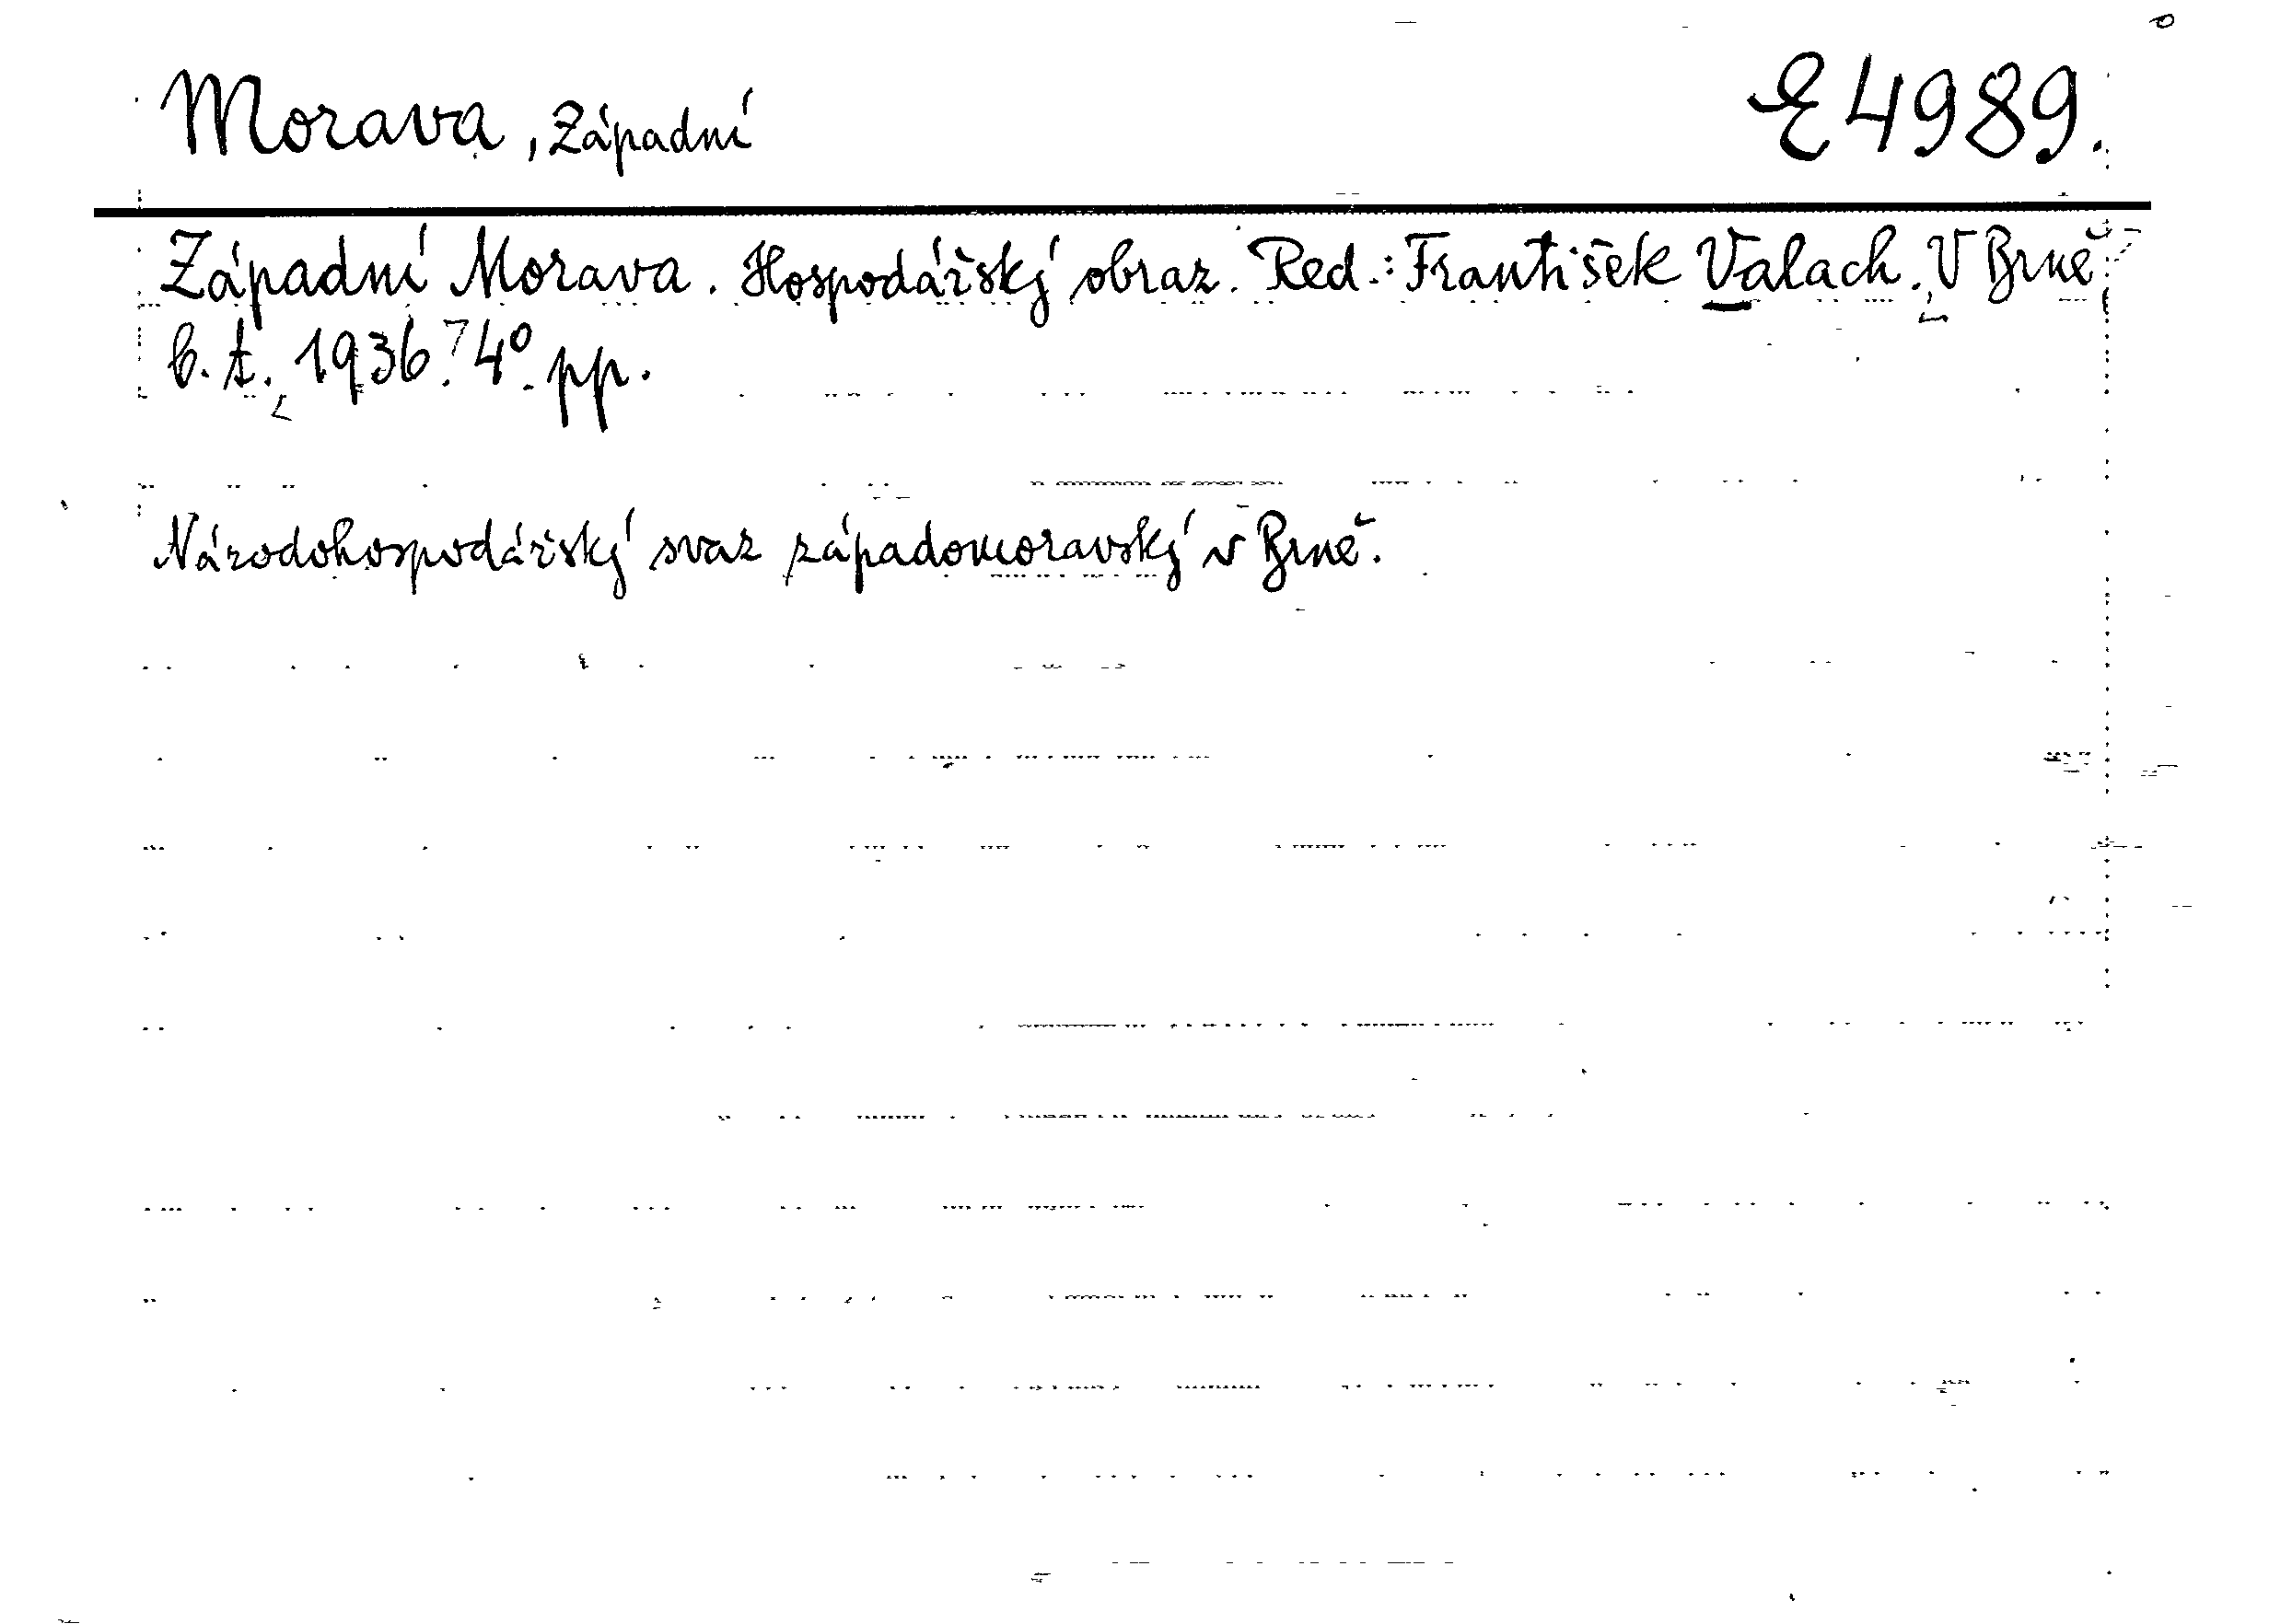 Morava, Západní E 4989.
Západní Morava. Hospodářský obraz. Red.: František Valach. V Brně
b. t. 1936. 4º. pp.
Národohospodářský svaz západomoravský v Brně.